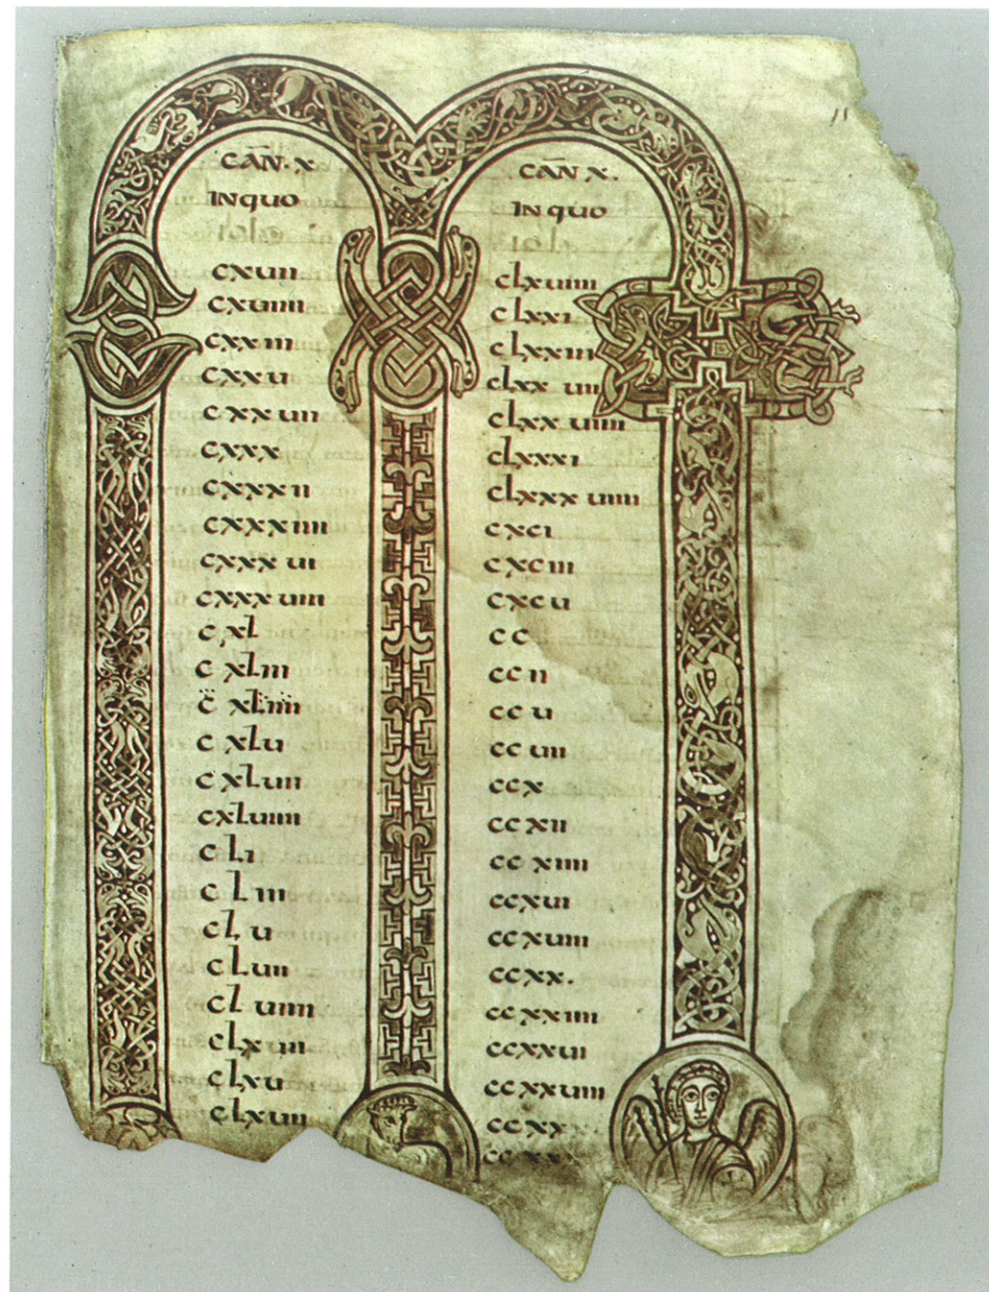 CAN̄. X
IN QUO
cxuii
cxuiiii
cxxiii
cxxu
cxxuii
cxxx
cxxxii
cxxxiiii
cxxxui
cxxxuiii
cxl
cxliii
cxliiii
cxlu
cxluii
cxluiiii
cli
cliii
clu
cluii
cluiiii
clxiii
clxu
clxuii
CAN̄ X.
IN QUO
clxuiiii
clxxi
clxxiii
clxxuii
clxxuiiii
clxxxi
clxxxuiiii
cxci
cxciii
cxcu
cc
ccii
ccu
ccuii
ccx
ccxii
ccxiiii
ccxui
ccxuiii
ccxx.
ccxxiiii
ccxxui
ccxxuiii